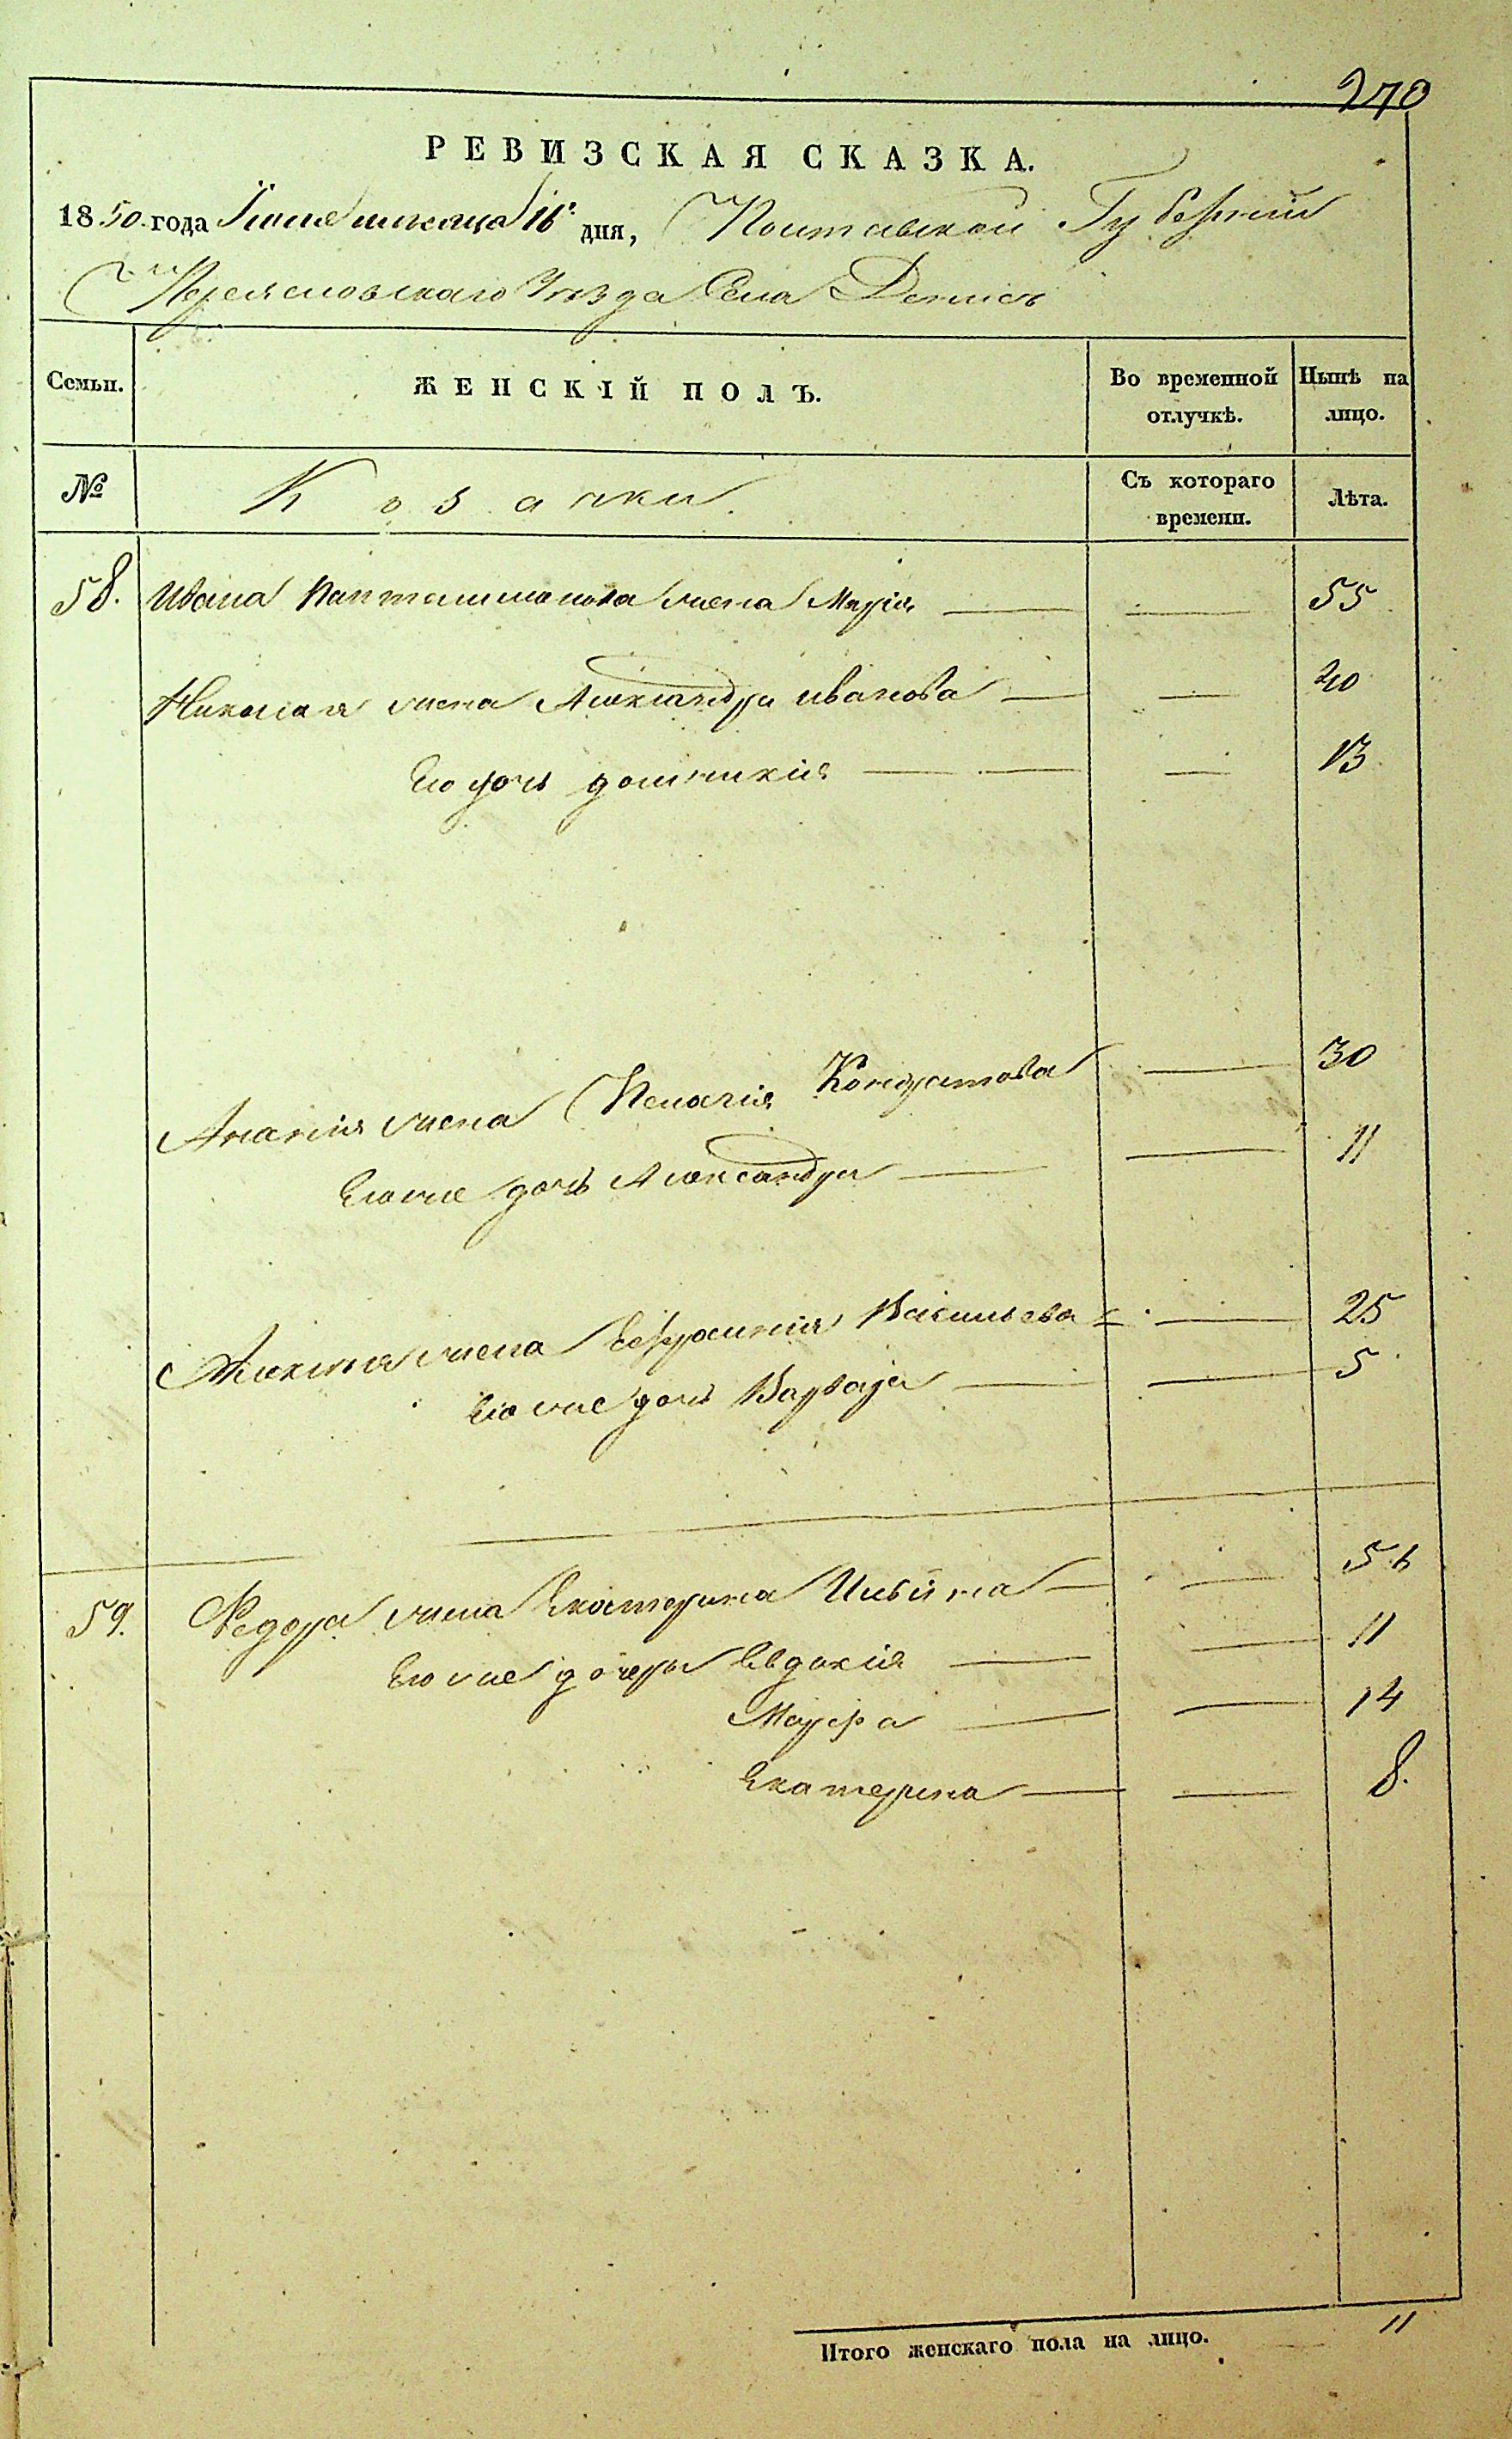 270
РЕВИЗСКАЯ СКАЗКА.
1850 года Іюня месяца 16 дня, Полтавской Губерніи
Переясловскаго Уѣзда Села Денисъ
Семьи. ЖЕНСКІЙ ПОЛЪ. Во временной отлучкѣ. Нынѣ на лицо.
№ Козачки. Съ котораго времени. Лѣта.
58. Ивана Пантелимонова жена Марія — — 55
Николая жена Александра Иванова — — 40
Его дочь Домникія — — — 13
Ананія жена Пелагія Кондратова — 30
Его же дочь Александра — — 11
Алексея жена Ефросинія Васильева — — 25
Его же дочь Варвара — — 5
59. Федора жена Екатерина Ильина — — 56
Его же дочери Евдокія — — 11
Марфа — — 14
Екатерина — — 8.
Итого женскаго пола на лицо. 11